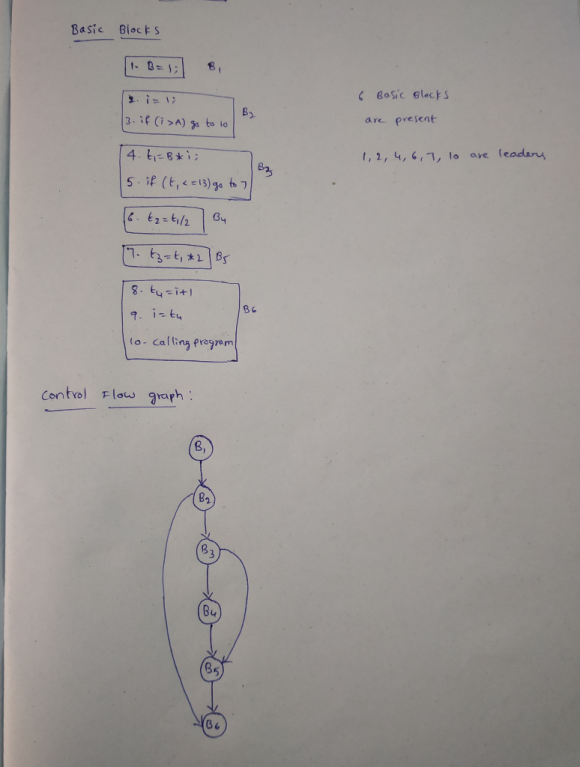 Basic Blocks
1. B=1; B1
2. i=1; B2
3. if (i>A) go to 10
4. t1=B*i; B3
5. if (t1<=13) go to 7
6. t2=t1/2 B4
7. t3=t1*2 B5
8. t4=i+1 B6
9. i=t4
10. calling program
6 Basic Blocks
are present
1, 2, 4, 6, 7, 10 are leaders
Control Flow graph:
B1
B2
B3
B4
B5
B6